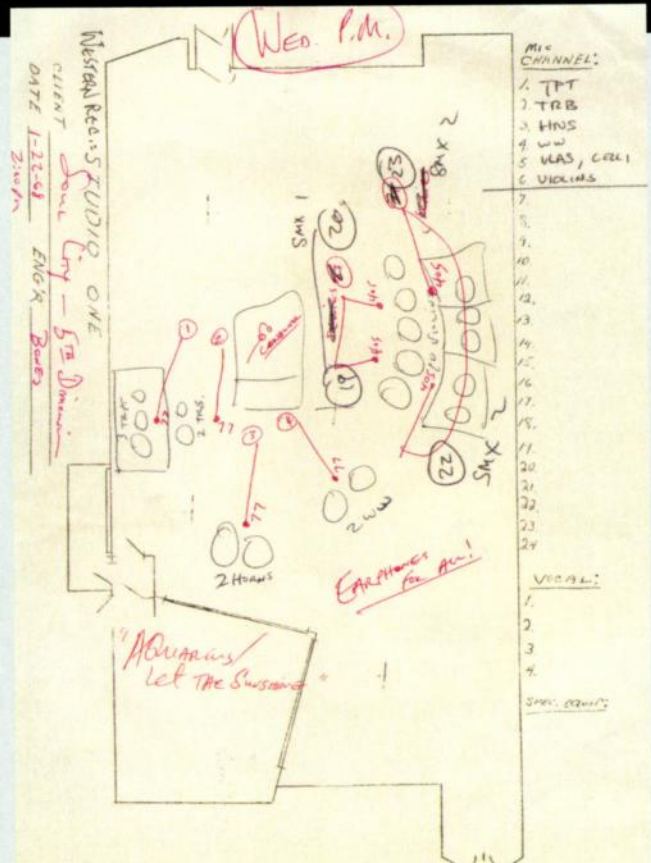 WED. P.M.
WESTERN REC. STUDIO ONE
CLIENT Soul City – 5TH Dimension
DATE 1-22-68 ENG'R BONES
2:00 PM
MIC
CHANNEL:
1. TPT
2. TRB
3. HNS
4. WW
5 VLAS, CELLI
6 VIOLINS
7.
8.
9.
10.
11.
12.
13.
14.
15.
16.
17.
18.
19.
20.
21.
22.
23
24
VOCAL:
1.
2.
3
4.
SPEC. EQUIP:
SMX 2
23
SMX 1
20
405
405
405
19
22
SMX 2
1
3 TRPT
77
2 TRB.
77
77
2 HORNS
77
2 WW
EARPHONES
FOR ALL!
"AQUARIUS/
Let THE SUNSHINE"